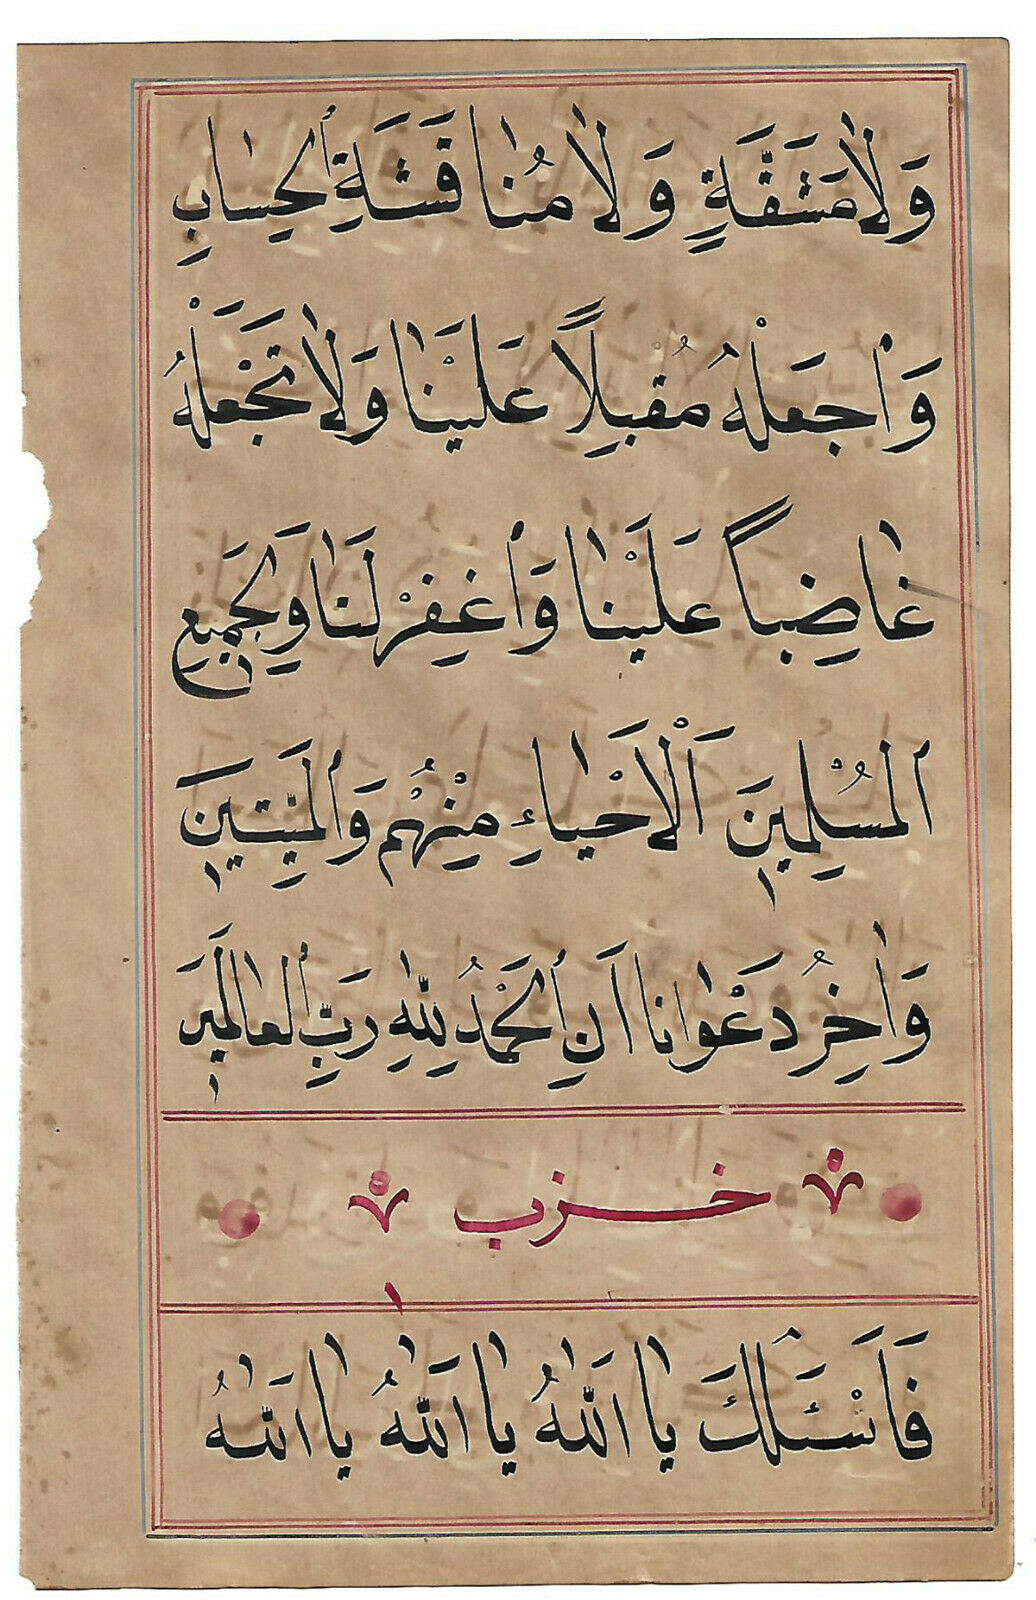 وَلَا مَشَقَّةٍ وَلَا مُنَاقَشَةِ الْحِسَابِ
وَاجْعَلْهُ مُقْبِلًا عَلَيْنَا وَلَا تَجْعَلْهُ
غَاضِبًا عَلَيْنَا وَاغْفِرْ لَنَا وَلِجَمِيعِ
الْمُسْلِمِينَ اَلْاَحْيَاءِ مِنْهُمْ وَالْمَيِّتِينَ
وَاٰخِرُ دَعْوَانَا اَنِ الْحَمْدُ لِلّٰهِ رَبِّ الْعَالَمِينَ
حزب
فَاَسْئَلُكَ يَا اَللّٰهُ يَا اَللّٰهُ يَا اَللّٰهُ